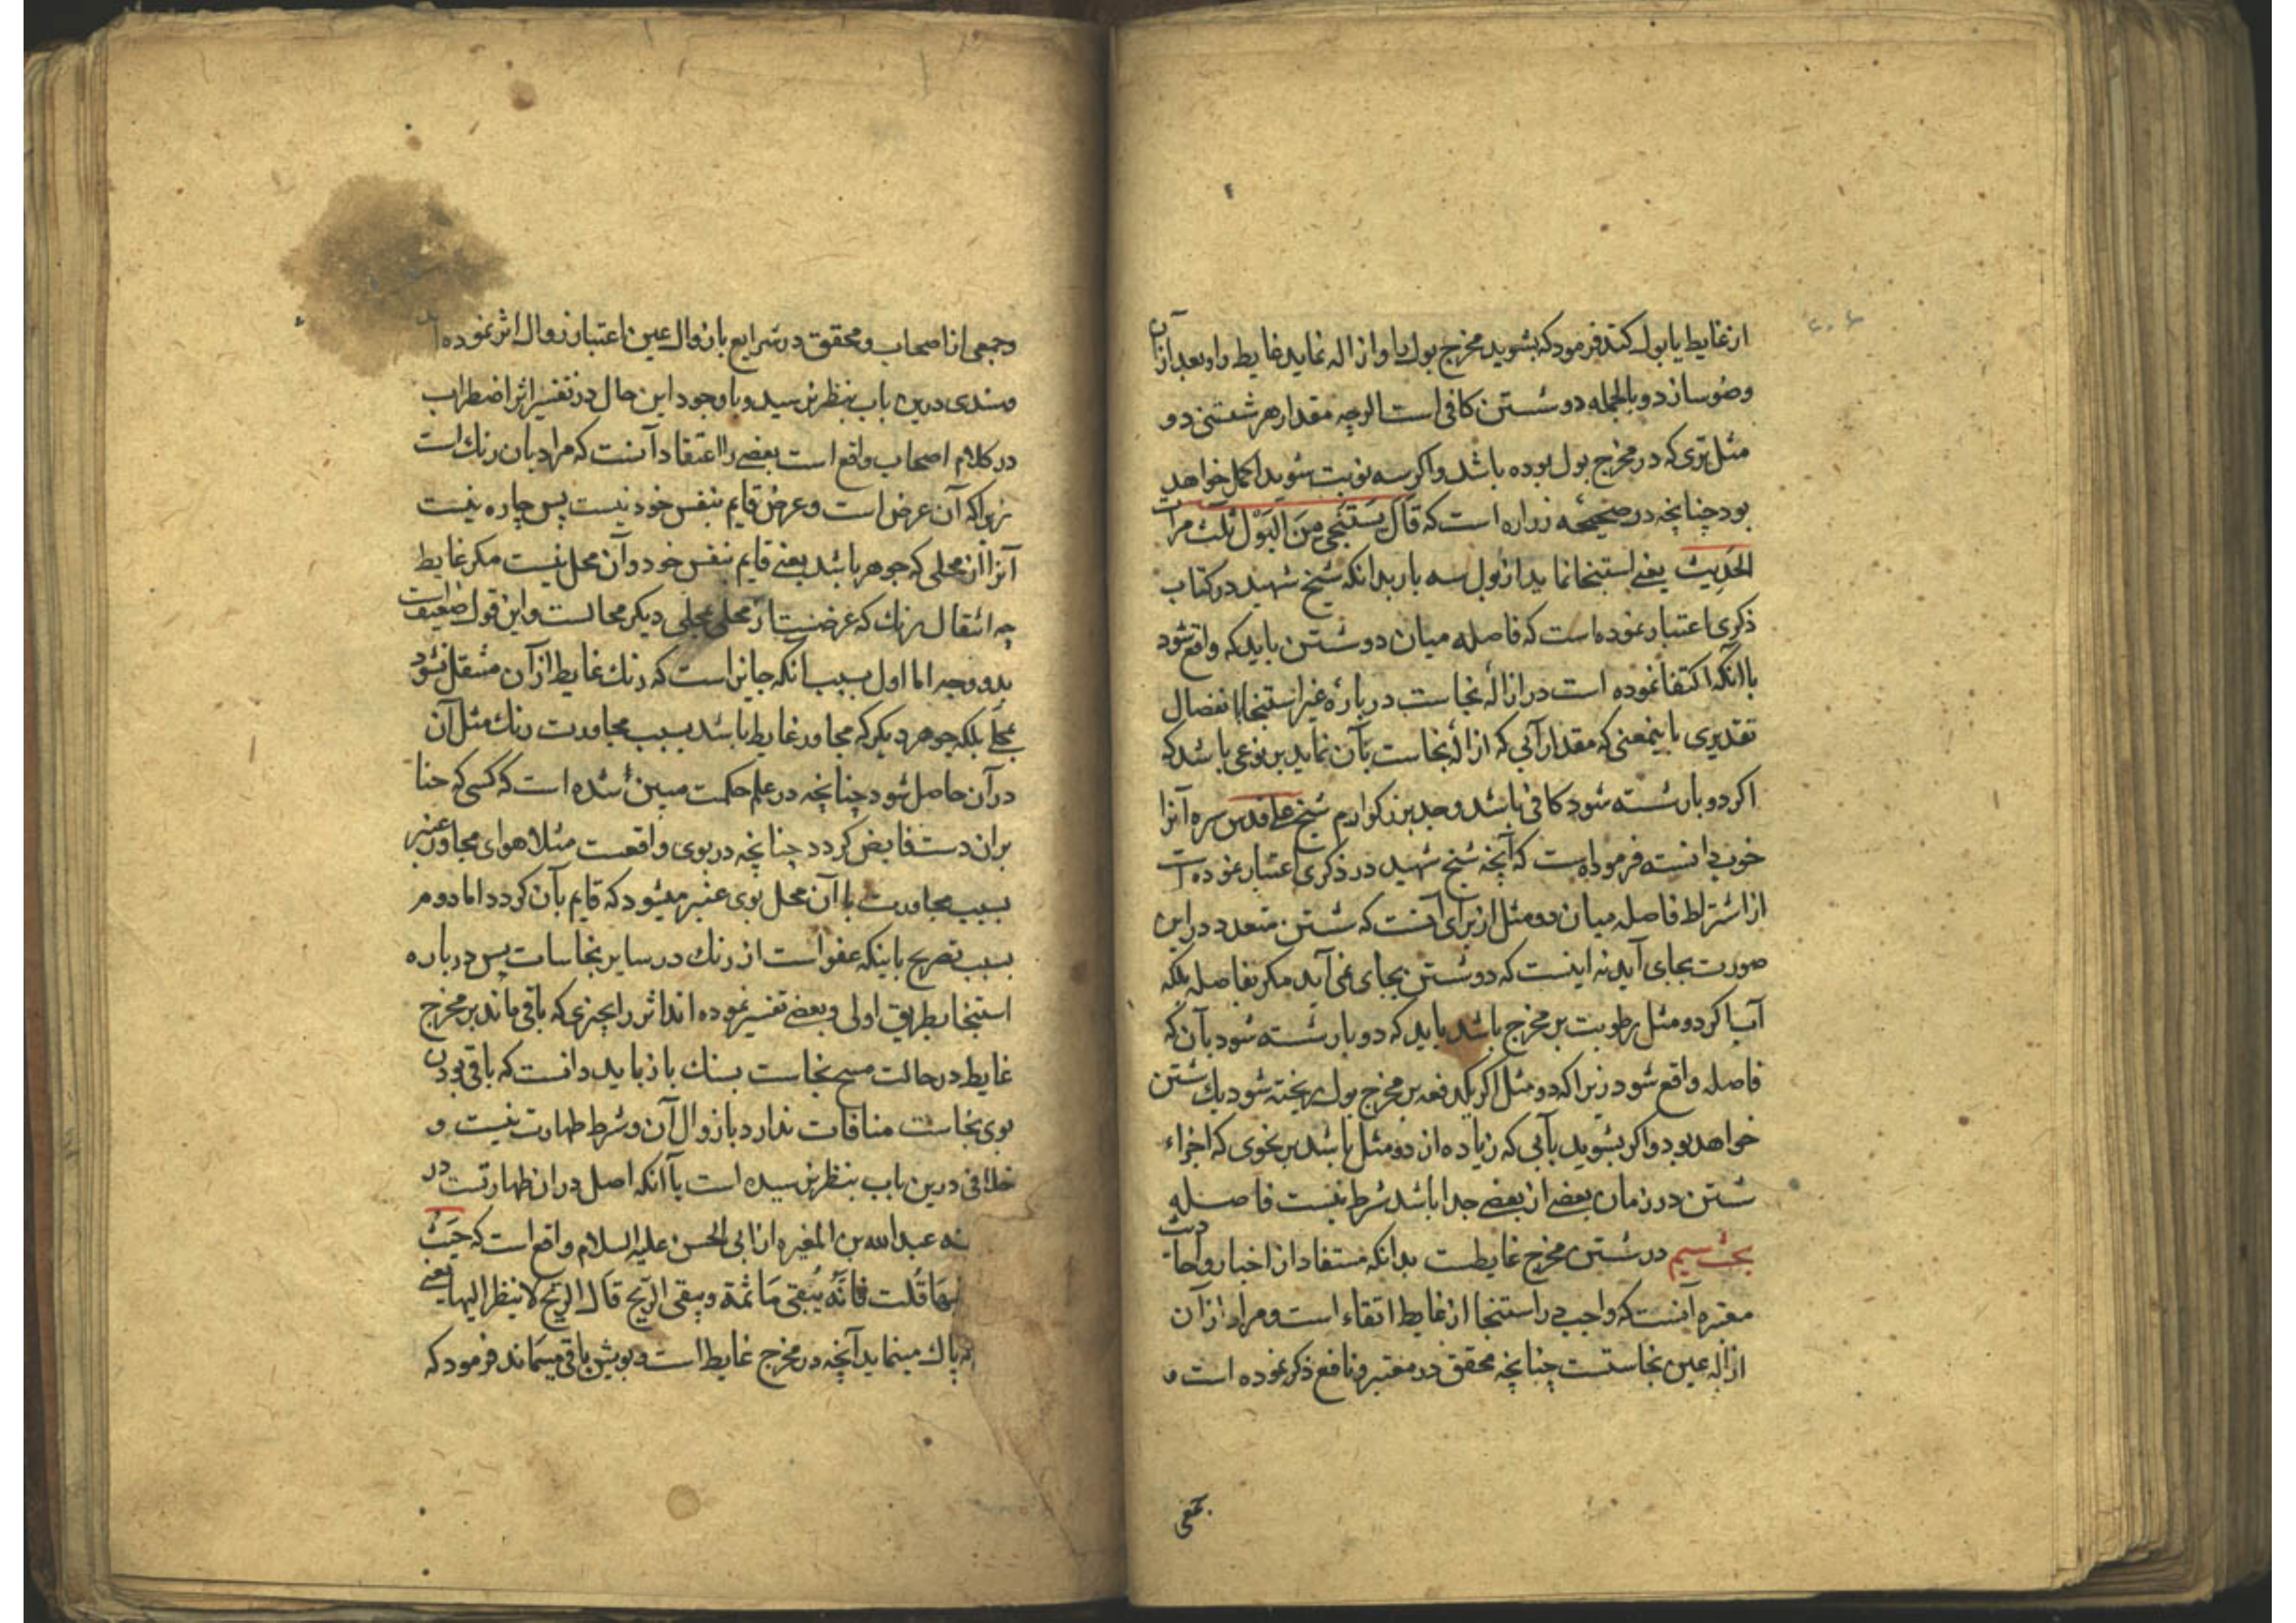 از غایط یا بول کند فرمود که بشوید مخرج بول را و ازاله نماید غایط را و بعد از آن
وضو سازد و بالجمله دو شستن کافی است اگرچه مقدار هر شستنی دو
مثل تری که در مخرج بول بوده باشد و اگر سه نوبت شوید اکمل خواهد
بود چنانچه در صحیحه زراره است که قَالَ یَسْتَنْجِی مِنَ البَوْلِ ثَلٰث مرات
الحَدِیث یعنی استنجا نماید از بول سه بار بدانکه شیخ شهید در کتاب
ذکری اعتبار نموده است که فاصله میان دو شستن باید که واقع شود
با آنکه اکتفا نموده است در ازالهٔ نجاست در بارهٔ غیر استنجا بانفصال
تقدیری باینمعنی که مقدار آبی که ازالهٔ نجاست بآن نماید بر نوعی باشد که
اکر دو بار شسته شود کافی باشد و جد بزرکوارم شیخ علی قدس سره آنرا
خوب دانسته فرموده است که آنچه شیخ شهید در ذکری اعتبار نموده است
از اشتراط فاصله میان دو مثل از برای آنست که شستن متعدد در این
صورت بجای آید نه اینست که دو شستن بجای نمی آید مکر بفاصله بلکه
آب اکر دو مثل رطوبت بر مخرج باشد باید که دو بار شسته شود بآن که
فاصله واقع شود زیرا که دو مثل اکر یکدفعه بر مخرج بول ریخته شود یك شستن
خواهد بود و اکر بشوید بآبی که زیاده از دو مثل باشد بر نحوی که اجزاء
شستن در زمان بعضی از بعضی جدا باشد شرط نیست فاصله
بحث سیم در شستن مخرج غایطست بدانکه مستفاد از اخبار و احادیث
معتبره آنست که واجب در استنجا از غایط انقاء است و مراد از آن
ازاله عین نجاستست چنانچه محقق در معتبر و نافع ذکر نموده است و
جمعی
و جمعی از اصحاب و محقق در شرایع با زوال عین اعتبار زوال اثر نموده اند
و سندی درین باب بنظر نرسید و با وجود این حال در تفسیر اثر اضطراب
در کلام اصحاب واقع است بعضی را اعتقاد آنست که مراد بان رنك است
زیرا که آن عرض است و عرض قایم بنفس خود نیست پس چاره نیست
آنرا از محلی که جوهر باشد یعنی قایم بنفس خود و آن محل نیست مکر غایط
چه انتقال رنك که عرضست از محلی بمحلی دیکر محالست و این قول ضعیف است
بدو وجه اما اول بسبب آنکه جایز است که رنك غایط از آن منتقل نشود
بمحلی بلکه جوهر دیکر که مجاور غایط باشد بسبب مجاورت رنك مثل آن
در آن حاصل شود چنانچه در علم حکمت مبین شده است که کسی که حنا
بران دست فایض کردد چنانچه در بوی واقعست مثلا هوای مجاور عنبر
بسبب مجاورت با آن محل بوی عنبر میشود که قایم بآن کردد اما دوم
بسبب تصریح باینکه عفو است از رنك در سایر نجاسات پس در باره
استنجا بطریق اولی و بعضی تفسیر نموده اند اثر را بچیزی که باقی ماند بر مخرج
غایط در حالت مسح نجاست بسنك باز باید دانست که باقی بودن
بوی نجاست منافات ندارد با زوال آن و شرط طهارت نیست و
خلافی درین باب بنظر نرسیده است با آنکه اصل در ان طهارتست در
عبدالله بن المغیره از ابی الحسن علیه السلام واقع است که
قُلت فَانَّهُ یُنقی مَا ثَمَّة و یبقی الرّیح قَالَ الرّیحُ لا ینظر الیها یعنی
پاك مینماید آنچه در مخرج غایط است و بویش باقی میماند فرمود که